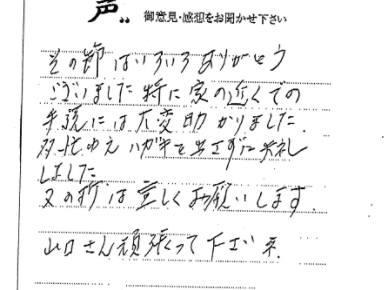 声
御意見・感想をお聞かせ下さい
その節はいろいろありがとう
ございました 特に家の近くでの
手続には大変助かりました.
多忙ゆえハガキを出さずに失礼
しました
又の折は宜しくお願いします.
山口さん頑張って下さい